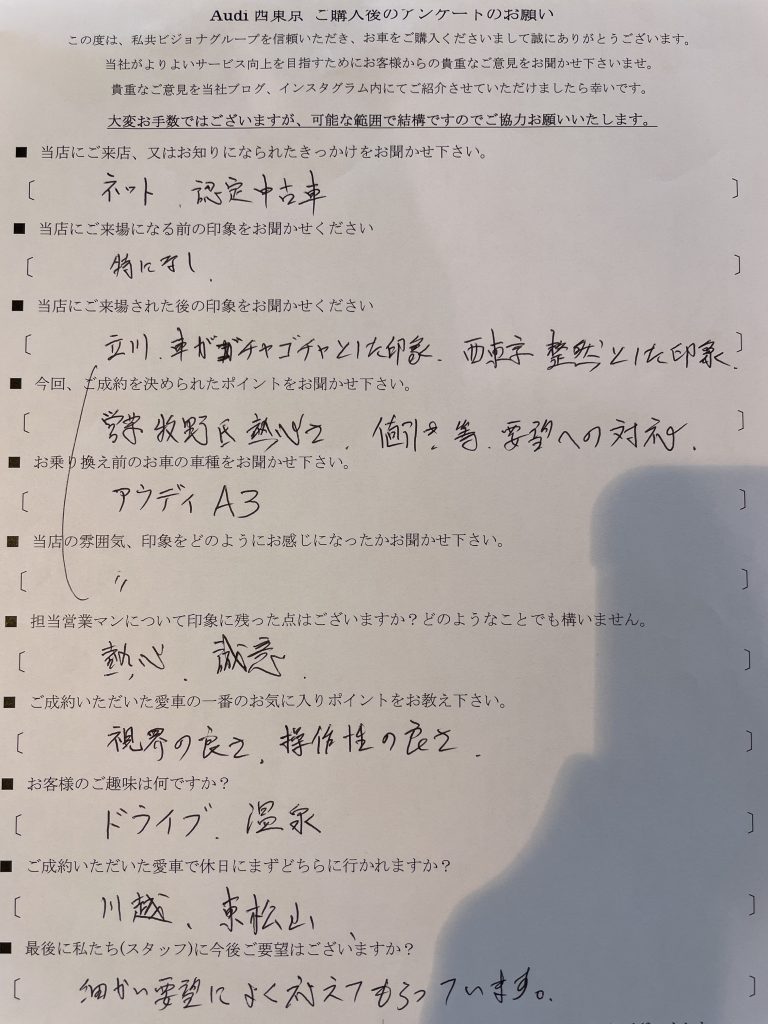 Audi 西東京 ご購入後のアンケートのお願い
この度は、私共ビジョナグループを信頼いただき、お車をご購入くださいまして誠にありがとうございます。
当社がよりよいサービス向上を目指すためにお客様からの貴重なご意見をお聞かせ下さいませ。
貴重なご意見を当社ブログ、インスタグラム内にてご紹介させていただけましたら幸いです。
大変お手数ではございますが、可能な範囲で結構ですのでご協力お願いいたします。
■ 当店にご来店、又はお知りになられたきっかけをお聞かせ下さい。
[ ネット、認定中古車 ]
■ 当店にご来場になる前の印象をお聞かせください
[ 特になし. ]
■ 当店にご来場された後の印象をお聞かせください
[ 立川、車がゴチャゴチャとした印象、西東京 整然とした印象. ]
■ 今回、ご成約を決められたポイントをお聞かせ下さい。
[ 営業 牧野氏 熱心さ、値引き等、要望への対応. ]
■ お乗り換え前のお車の車種をお聞かせ下さい。
[ アウディ A3 ]
■ 当店の雰囲気、印象をどのようにお感じになったかお聞かせ下さい。
[ 〃 ]
■ 担当営業マンについて印象に残った点はございますか？どのようなことでも構いません。
[ 熱心、誠意. ]
■ ご成約いただいた愛車の一番のお気に入りポイントをお教え下さい。
[ 視界の良さ、操作性の良さ. ]
■ お客様のご趣味は何ですか？
[ ドライブ、温泉 ]
■ ご成約いただいた愛車で休日にまずどちらに行かれますか？
[ 川越、東松山、 ]
■ 最後に私たち(スタッフ)に今後ご要望はございますか？
[ 細かい要望によく応えてもらっています。 ]